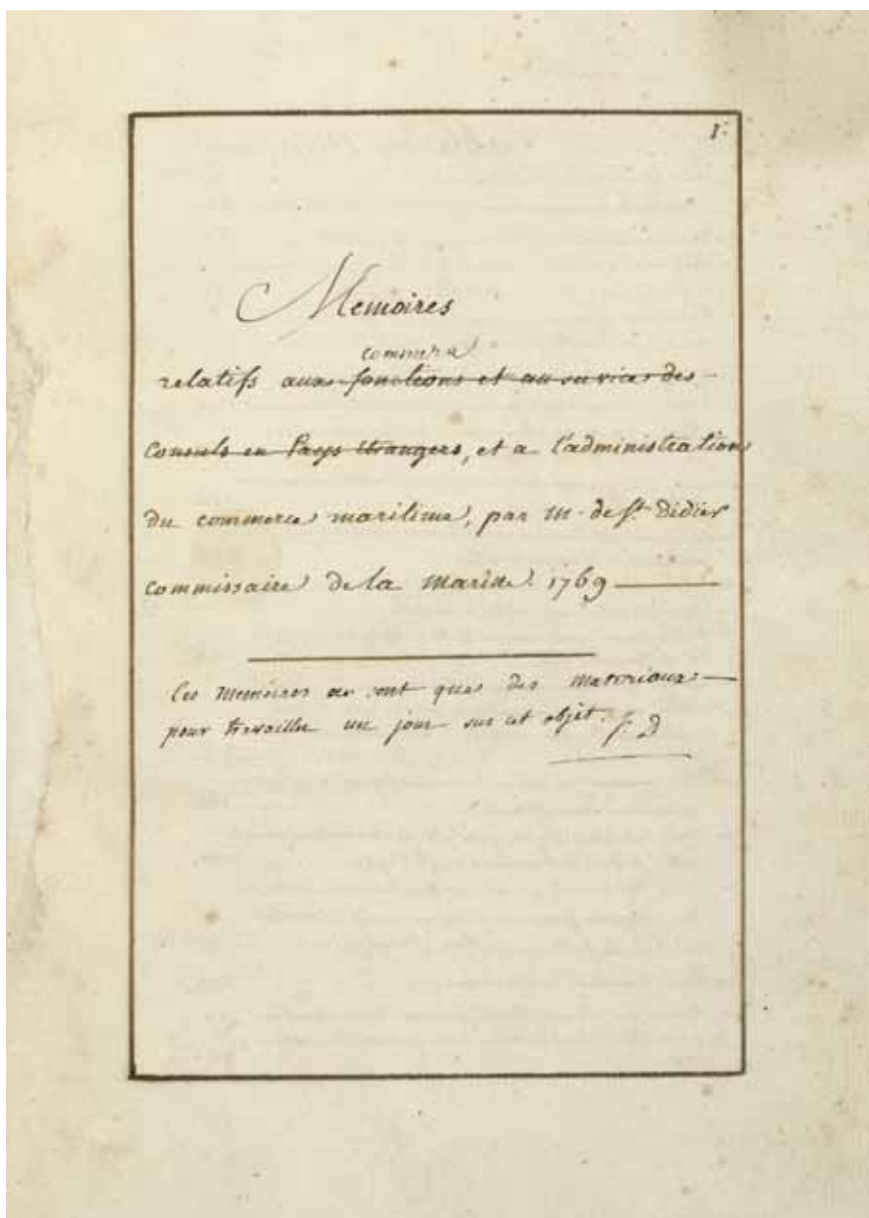 1.
Memoires
commerce
relatifs aux fonctions et au service des
Consuls en Pays étrangers, et a l'administration
du commerce maritime, par m. de St. Didier
commissaire de la marine. 1769
Ces memoires ne sont que des materiaux
pour travailler un jour sur cet objet. S. D